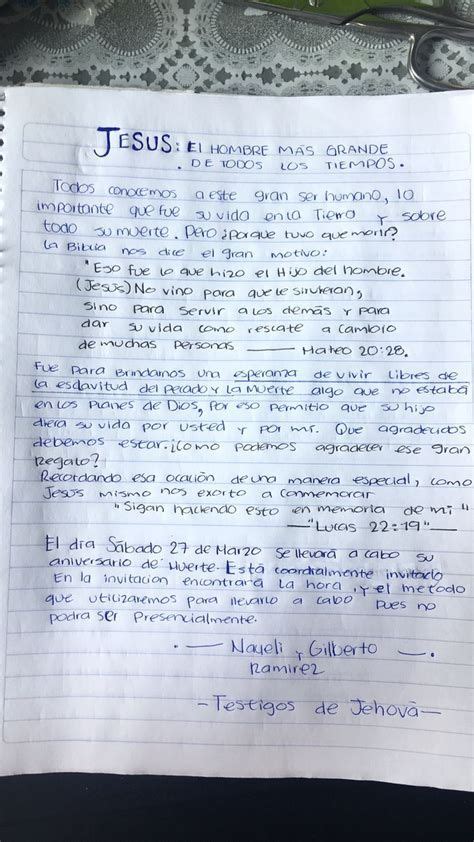 JESUS: El HOMBRE MÁS GRANDE
. DE TODOS LOS TIEMPOS.
Todos conocemos a este gran ser humano, lo
importante que fue su vida en la Tierra y sobre
todo su muerte. Pero ¿Porque tuvo que morir?
La Biblia nos dice el gran motivo:
"Eso fue lo que hizo el Hijo del hombre.
(Jesus) No vino para que le sirvieran,
sino para servir a los demás y para
dar su vida como rescate a cambio
de muchas personas — Mateo 20:28.
Fue Para Brindarnos una esperanza de vivir libres de
la esclavitud del Pecado y La Muerte algo que no estaba
en los Planes de Dios, Por eso Permitio que su hijo
diera su vida por usted y por mi. Que agradecidos
debemos estar. ¿Como podemos agradecer ese gran
Regalo?
Recordando esa ocación de una manera especial, como
Jesus mismo nos exorto a conmemorar
"Sigan haciendo esto en memoria de mi"
—"Lucas 22:19"—
El día Sábado 27 de Marzo se llevará a cabo su
aniversario de Muerte. Está coordialmente invitado
En la invitacion encontrará la hora y el metodo
que utilizaremos para llevarlo a cabo Pues no
podra ser Presencialmente.
. — Nayeli y Gilberto — .
Ramirez
- Testigos de Jehová -